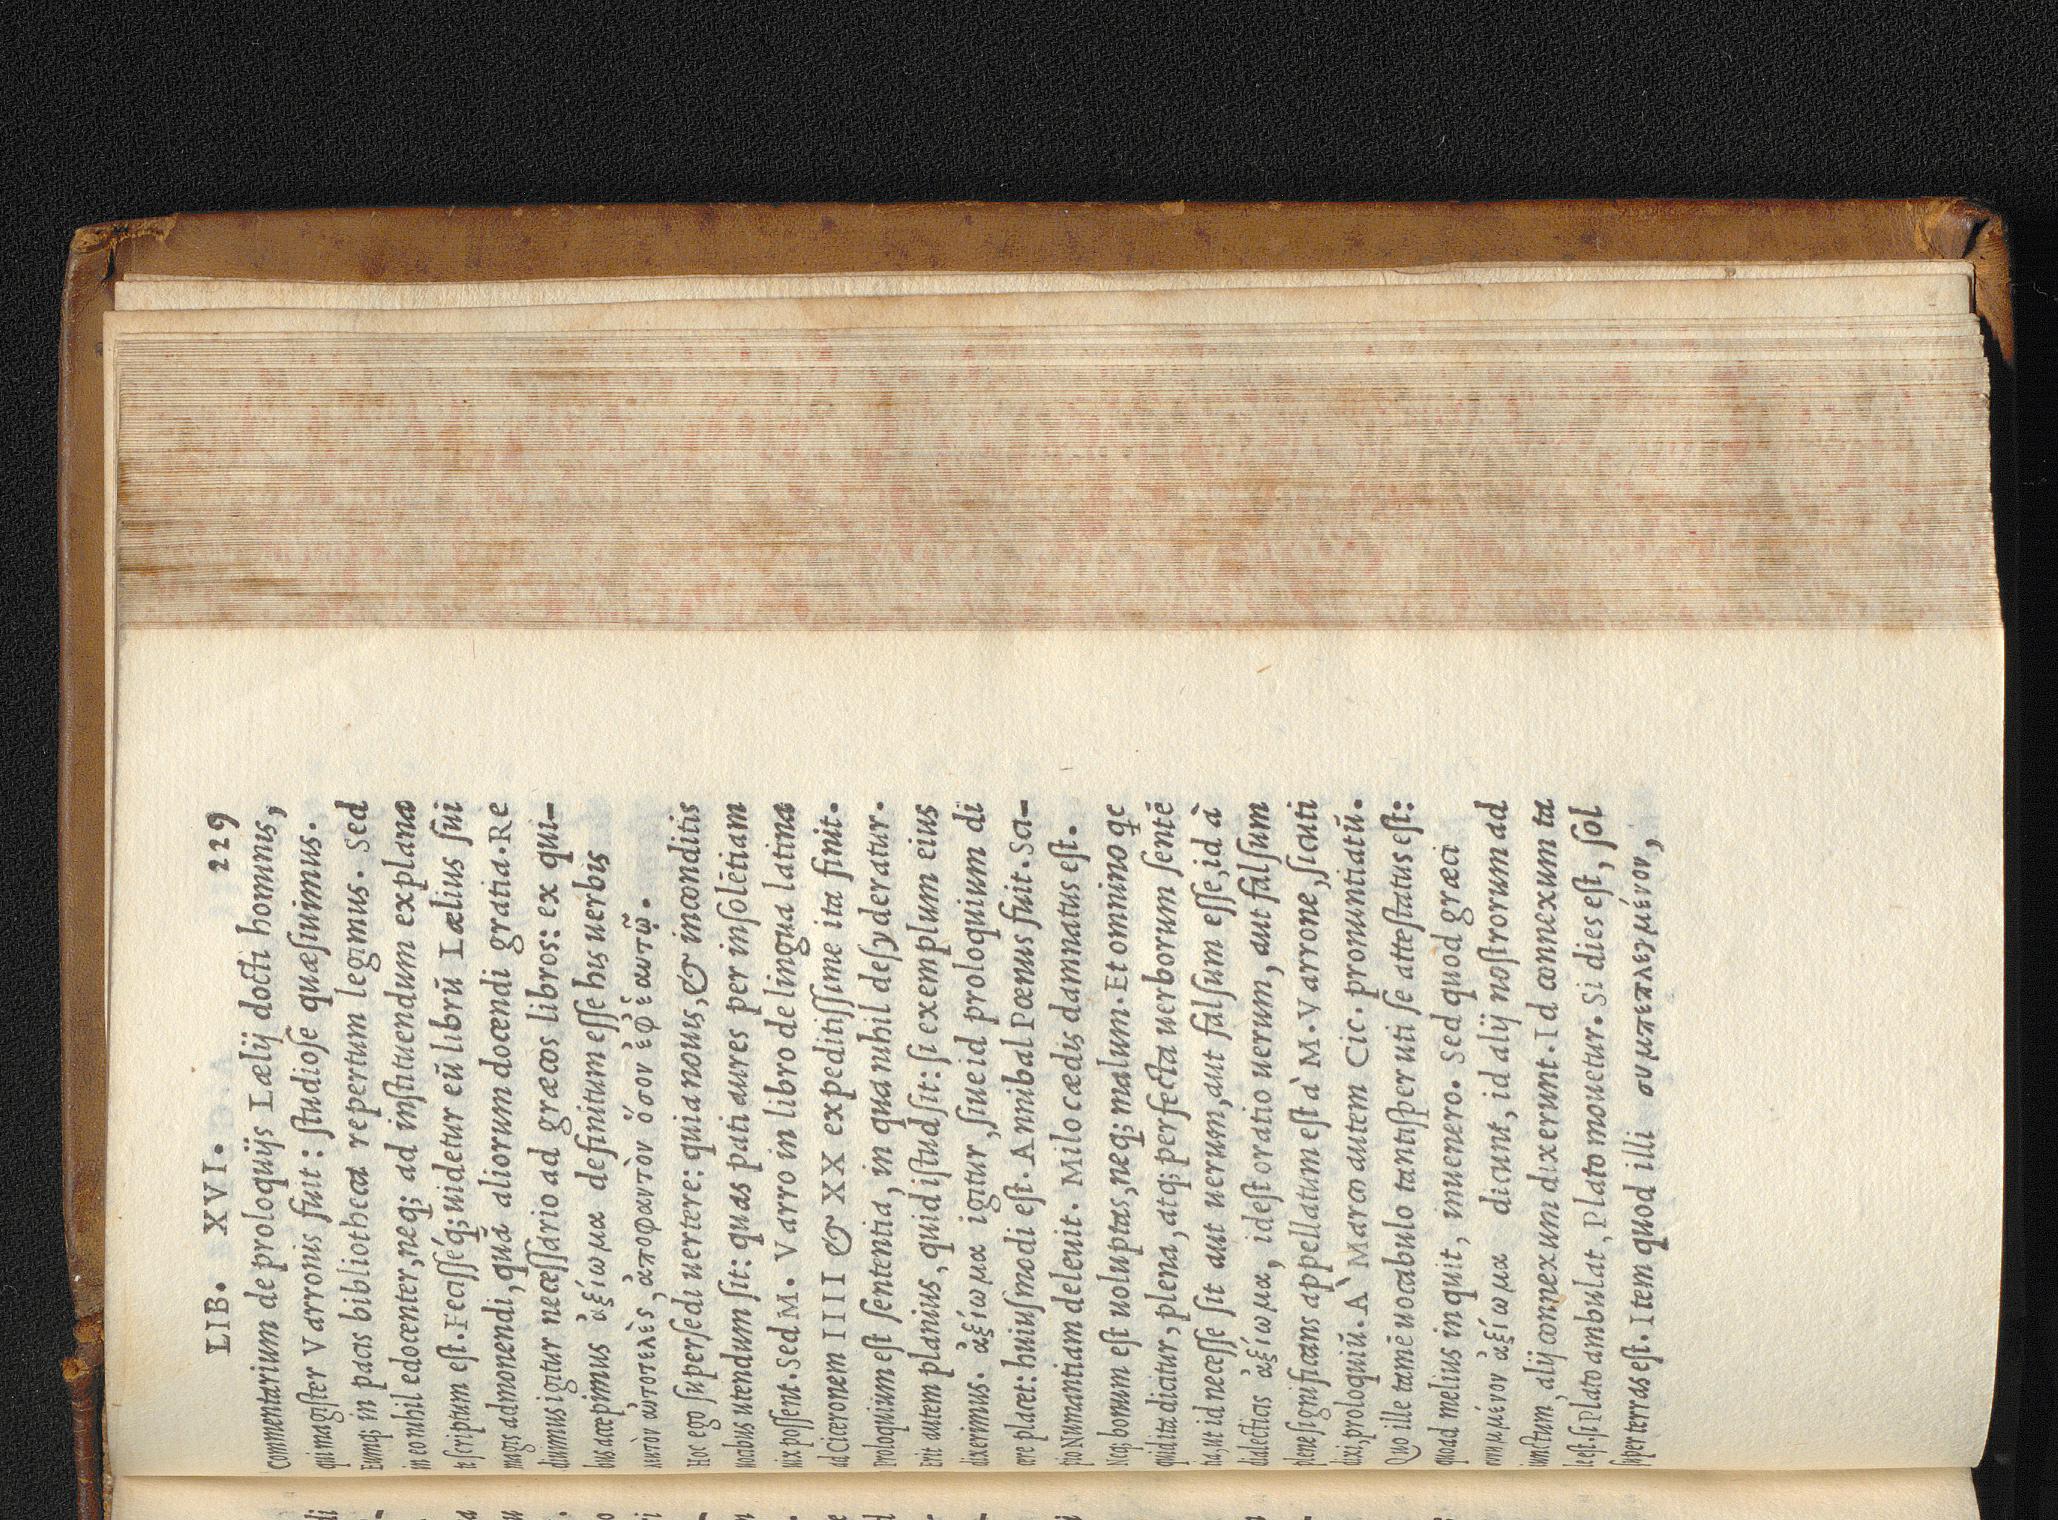 LIB. XVI. 229
Commentarium de proloquijs Lælij docti hominis,
qui magister Varronis fuit: studiose quæsiuimus.
Eumq; in pacis bibliotheca repertum legimus. Sed
in eo nihil edocenter, neq; ad instituendum explana
te scriptum est. Fecisséq; uidetur eū librū Lælius sui
magis admonendi, quā aliorum docendi gratia. Re
diuimus igitur necessario ad græcos libros: ex qui-
bus accepimus ἀξίωμα definitum esse his uerbis
λεκτὸν αὐτοτελὲς, ἀποφαντὸν ὅσον ἐφ᾽ ἑαυτῷ.
Hoc ego supersedi uertere: quia nouis, & inconditis
uocibus utendum sit: quas pati aures per insolētiam
uix possent. Sed M. Varro in libro de lingua latina
ad Ciceronem IIII & XX expeditissime ita finit.
Proloquium est sententia, in qua nihil desyderatur.
Erit autem planius, quid istud sit: si exemplum eius
dixerimus. ἀξίωμα igitur, siue id proloquium di
cere placet: huiusmodi est. Annibal Pœnus fuit. Sci-
pio Numantiam deleuit. Milo cædis damnatus est.
Neq; bonum est uoluptas, neq; malum. Et omnino qc
quid ita dicitur, plena, atq; perfecta uerborum sentē
tia, ut id necesse sit aut uerum, aut falsum esse, id à
dialecticis ἀξίωμα, idest oratio uerum, aut falsum
plene significans appellatum est à M. Varrone, sicuti
dixi, proloquiū. A` Marco autem Cic. pronuntiatū.
Quo ille tamē uocabulo tantisper uti se attestatus est:
quoad melius inquit, inuenero. Sed quod græci
συνημμένον ἀξίωμα dicunt, id alij nostrorum ad
iunctum, alij connexum dixerunt. Id connexum ta
le est. si Plato ambulat, Plato mouetur. Si dies est, sol
super terras est. Item quod illi συμπεπλεγμένον,